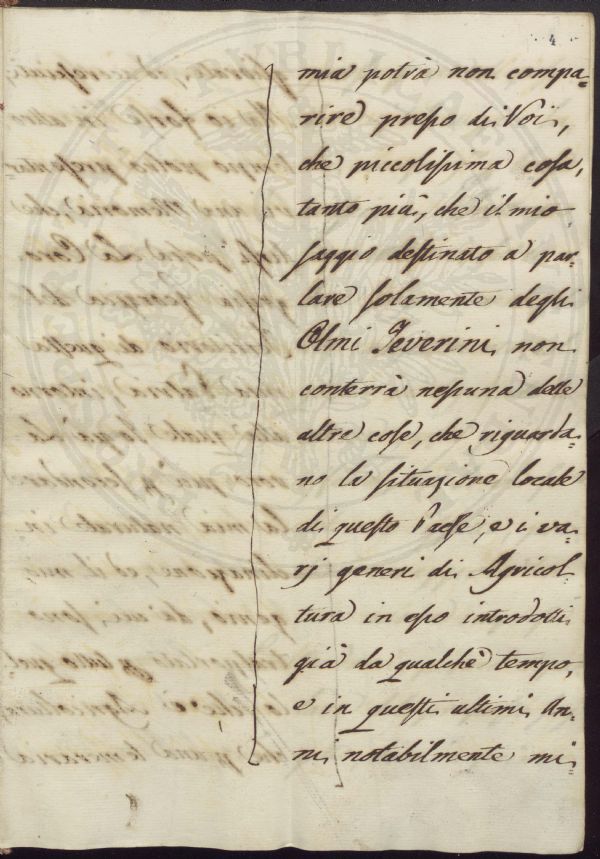 4
mia potrà non compa=
rire presso di Voi,
che piccolissima cosa,
tanto più, che il mio
saggio destinato a par=
lare solamente degli
Olmi Severini non
conterrà nessuna delle
altre cose, che riguarda=
no la situazione locale
di questo Paese, e i va=
rj generi di Agricol=
tura in esso introdotti
già da qualche tempo,
e in questi ultimi An=
ni notabilmente mi=